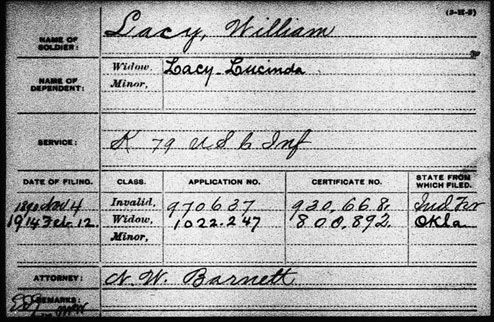 (3-H-2)
NAME OF SOLDIER: Lacy, William
NAME OF DEPENDENT: Widow, Lacy Lucinda
Minor,
SERVICE: K 79 U S C Inf
DATE OF FILING. CLASS. APPLICATION NO. CERTIFICATE NO. STATE FROM WHICH FILED.
4 Invalid, 970637 920,668. Ind Ter
1914 Feb. 12 Widow, 1022.247 800,892. Okla
Minor,
ATTORNEY: N. W. Barnett
REMARKS: